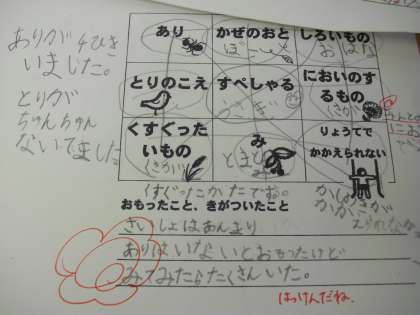 ありが4ひき
いました。
とりが
ちゅんちゅん
ないてました
あり
かぜのおと
しろいもの
おはな
とりのこえ
すぺしゃる
においのす
るもの
くすぐった
いもの
み
りょうてで
かかえられない
くすぐったかたです。
おもったこと、きがついたこと
さいしょはあんまり
ありはいないとおもったけど
みてみたらたくさんいた。
はっけんだね。